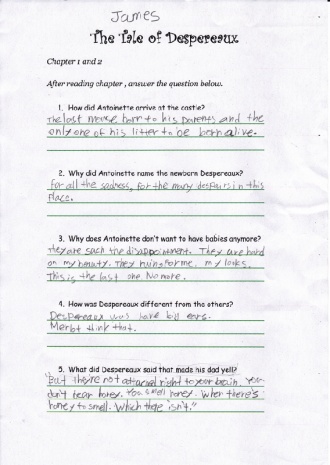 James
The Tale of Despereaux
Chapter 1 and 2
After reading chapter , answer the question below.
1. How did Antoinette arrive at the castle?
The last mouse born to his parents and the
only one of his litter to be born alive.
2. Why did Antoinette name the newborn Despereaux?
for all the sadness, for the many despairs in this
Place.
3. Why does Antoinette don't want to have babies anymore?
They are such the disappointment. They are hard
on my beauty. They ruin for me, my looks.
This is the last one. No more.
4. How was Despereaux different from the others?
Despereaux was have ears.
think that.
5. What did Despereaux said that made his dad yell?
"But they're not attached right to your brain. You
don't hear honey. You smell honey. When there's
honey to smell. Which there isn't."